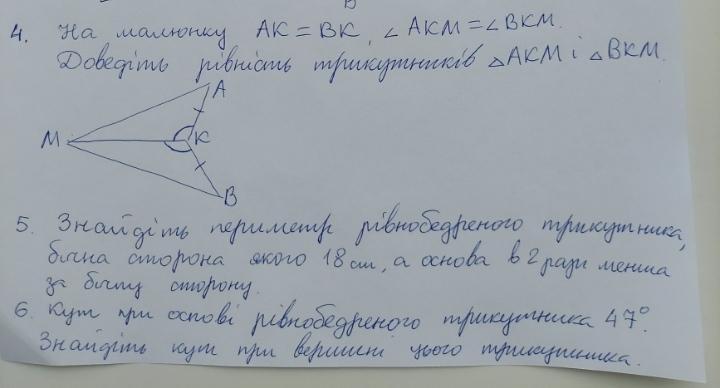 4. На малюнку AK = BK, ∠AKM = ∠BKM.
Доведіть рівність трикутників △AKM і △BKM.
A
M
K
B
5. Знайдіть периметр рівнобедреного трикутника,
бічна сторона якого 18 см, а основа в 2 рази менша
за бічну сторону.
6. Кут при основі рівнобедреного трикутника 47°.
Знайдіть кут при вершині цього трикутника.